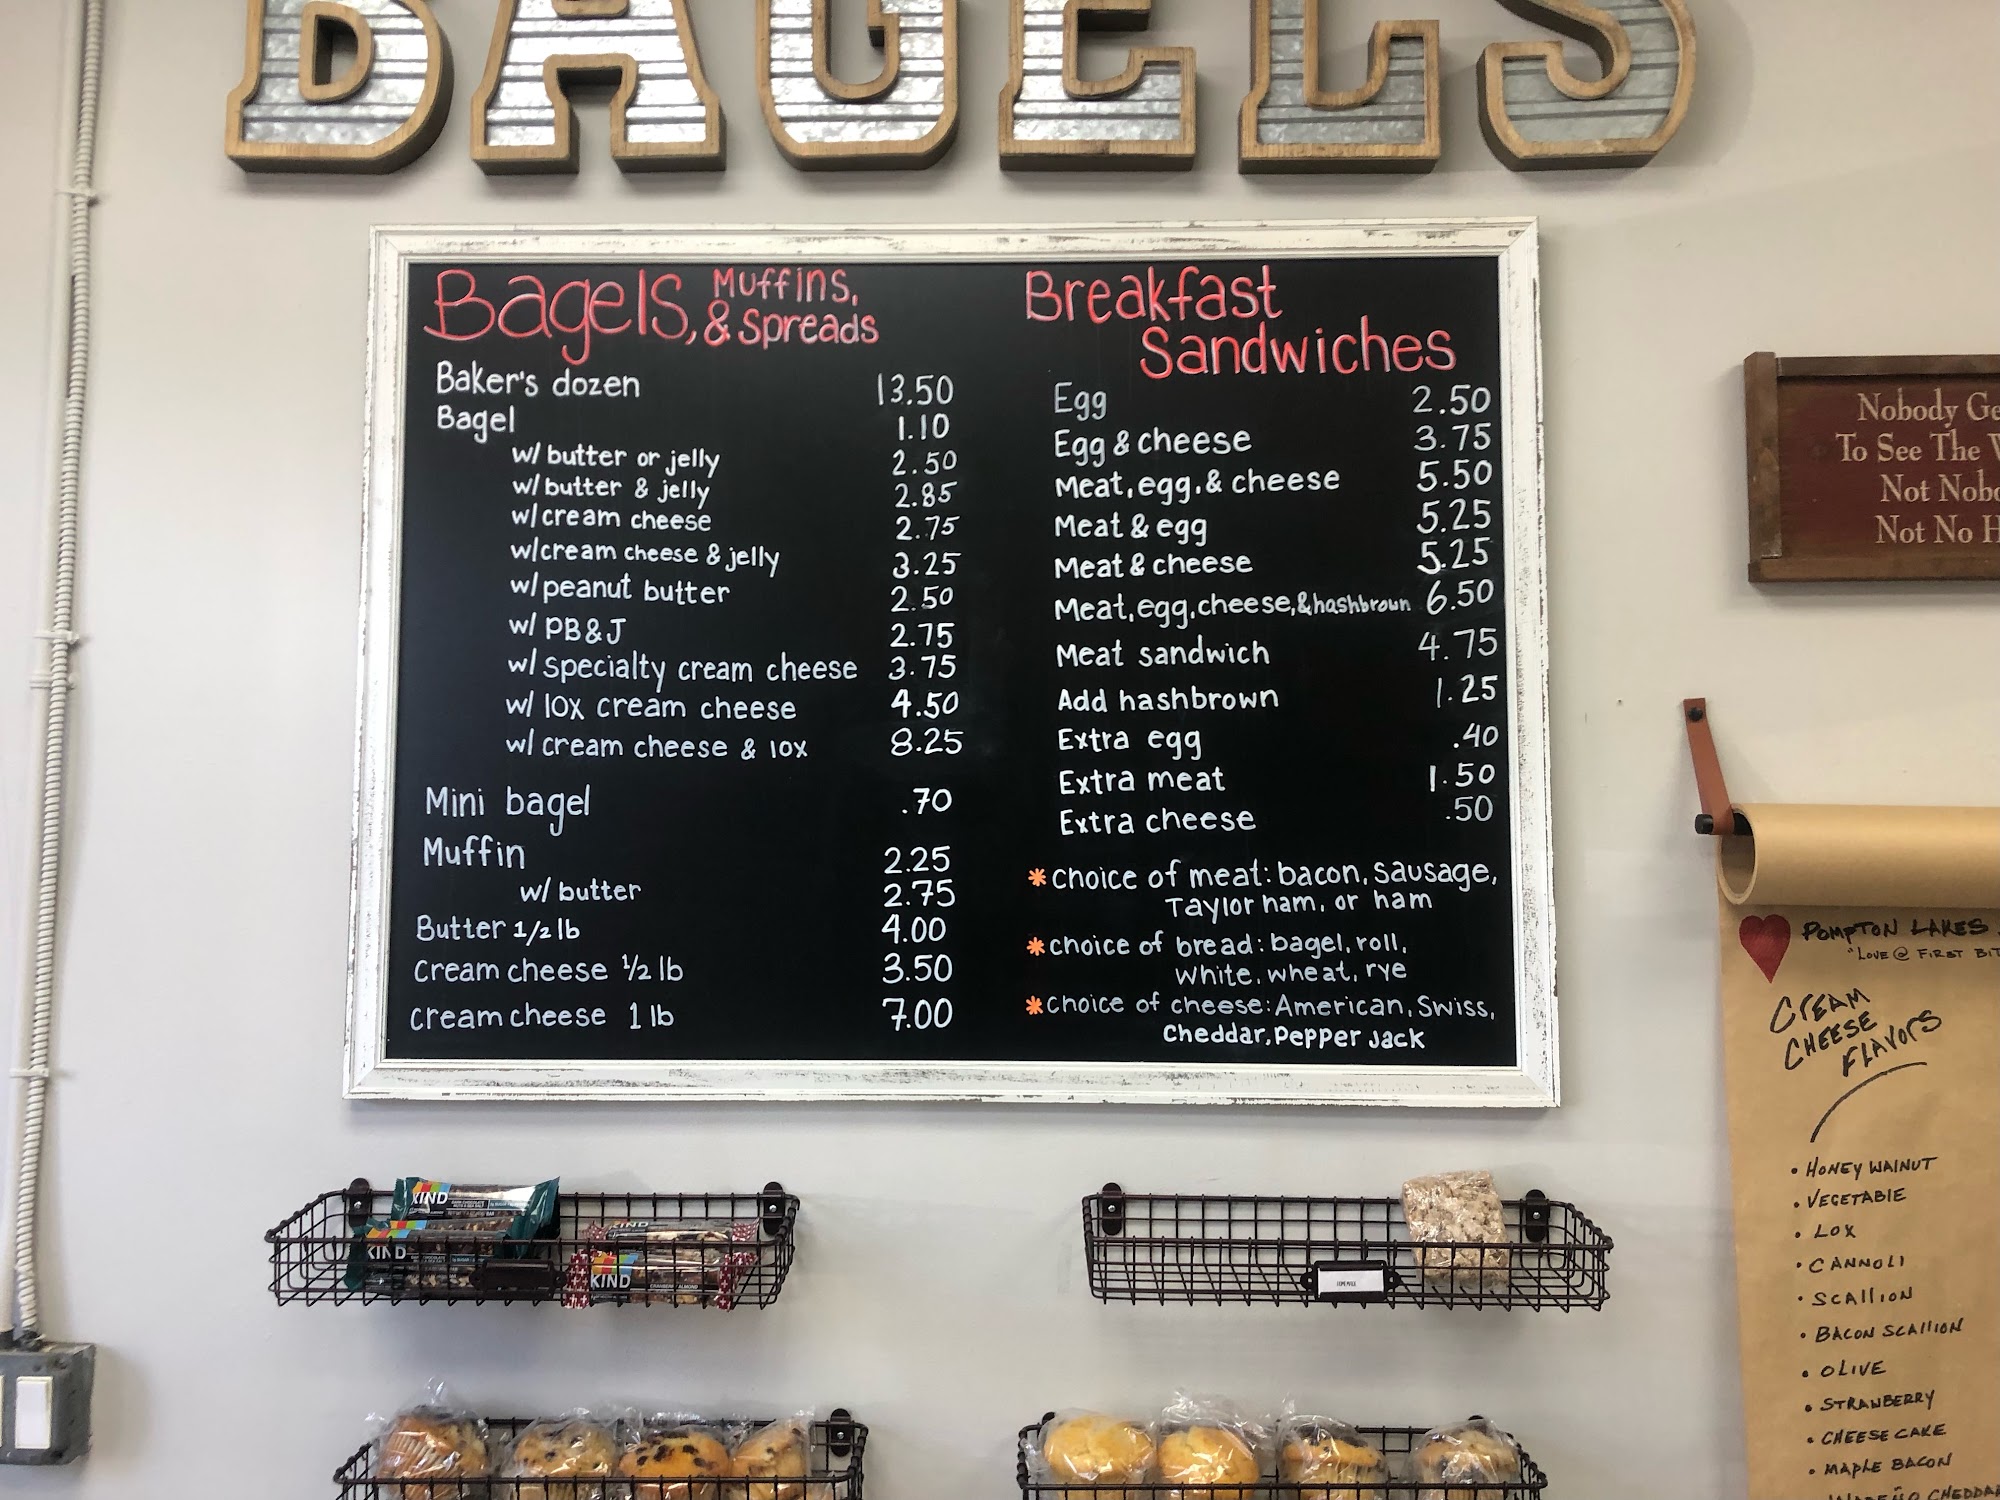 BAGELS
Bagels, Muffins,
& Spreads
Baker's dozen 13.50
Bagel 1.10
w/ butter or jelly 2.50
w/ butter & jelly 2.85
w/ cream cheese 2.75
w/ cream cheese & jelly 3.25
w/ peanut butter 2.50
w/ PB&J 2.75
w/ specialty cream cheese 3.75
w/ lox cream cheese 4.50
w/ cream cheese & lox 8.25
Mini bagel .70
Muffin 2.25
w/ butter 2.75
Butter 1/2 lb 4.00
Cream cheese 1/2 lb 3.50
Cream cheese 1 lb 7.00
Breakfast
Sandwiches
Egg 2.50
Egg & cheese 3.75
Meat, egg, & cheese 5.50
Meat & egg 5.25
Meat & cheese 5.25
Meat, egg, cheese, & hashbrown 6.50
Meat sandwich 4.75
Add hashbrown 1.25
Extra egg .40
Extra meat 1.50
Extra cheese .50
*choice of meat: bacon, sausage,
Taylor ham, or ham
*choice of bread: bagel, roll,
white, wheat, rye
*choice of cheese: American, Swiss,
Cheddar, Pepper Jack
Nobody Ge
To See The W
Not Nobo
Not No H
POMPTON LAKES
"LOVE @ FIRST BIT
CREAM
CHEESE
FLAVORS
• HONEY WALNUT
• VEGETABLE
• LOX
• CANNOLI
• SCALLION
• BACON SCALLION
• OLIVE
• STRAWBERRY
• CHEESE CAKE
• MAPLE BACON
CHEDDAR
KIND
KIND
KIND
KIND